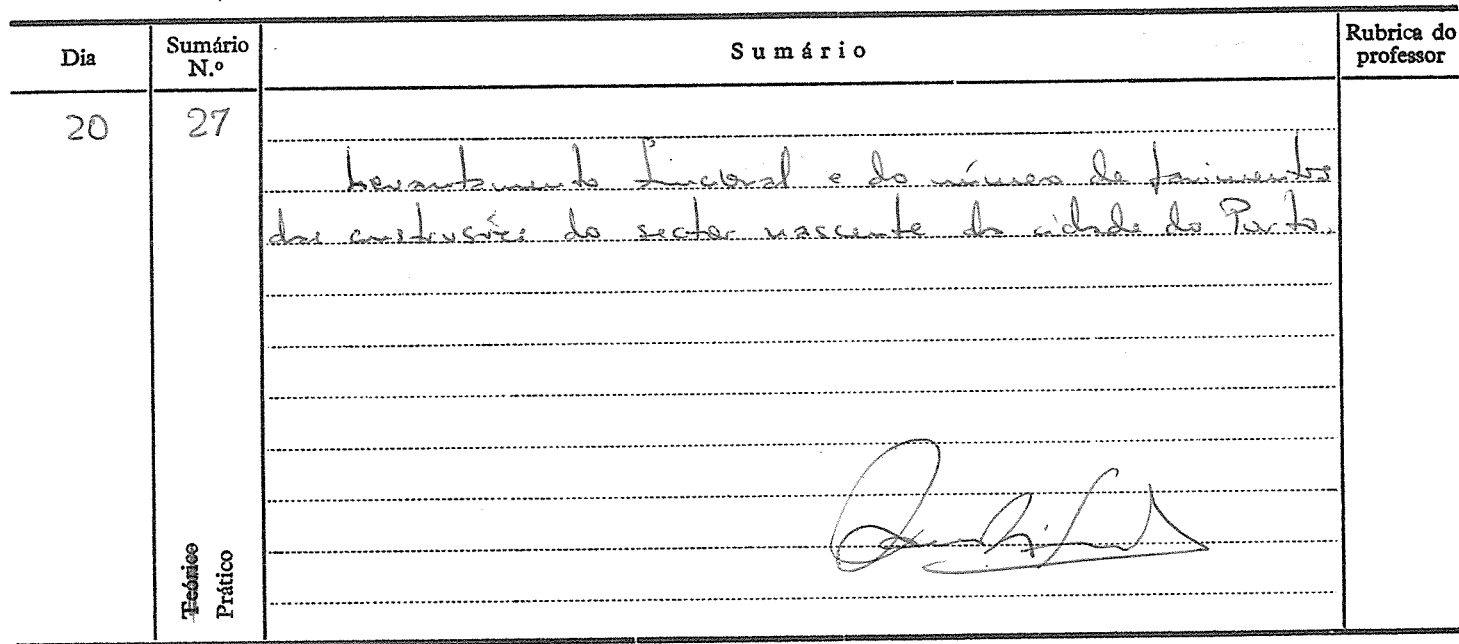 Dia
Sumário N.º
Sumário
Rubrica do professor
20
27
Levantamento funcional e do número de pavimentos
das construções do sector nascente da cidade do Porto.
Teórico
Prático